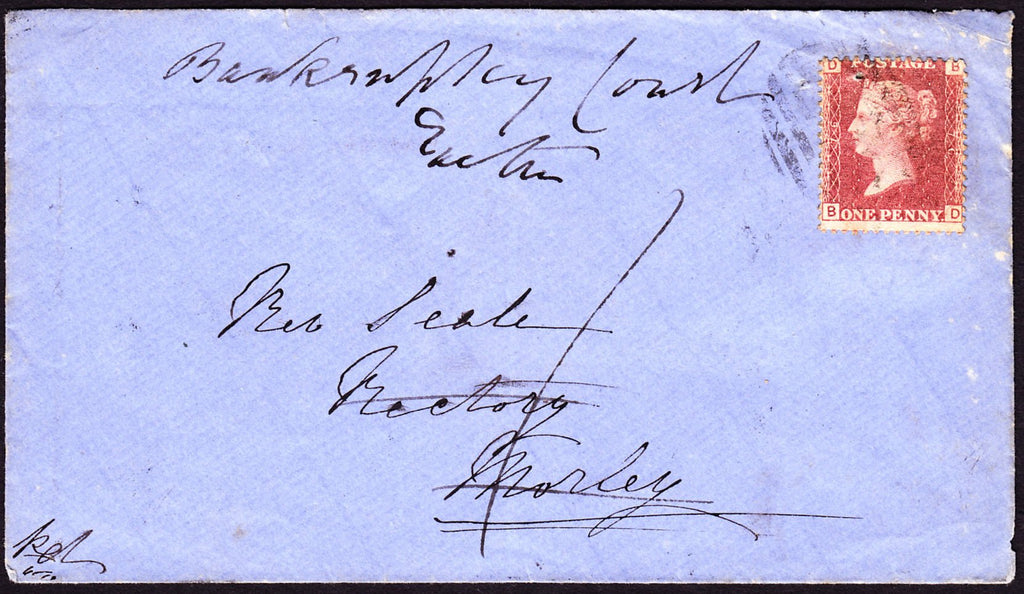 Bankruptcy Court
Exeter
D POSTAGE B
B ONE PENNY. D
Rev Seale
Rectory
Morley